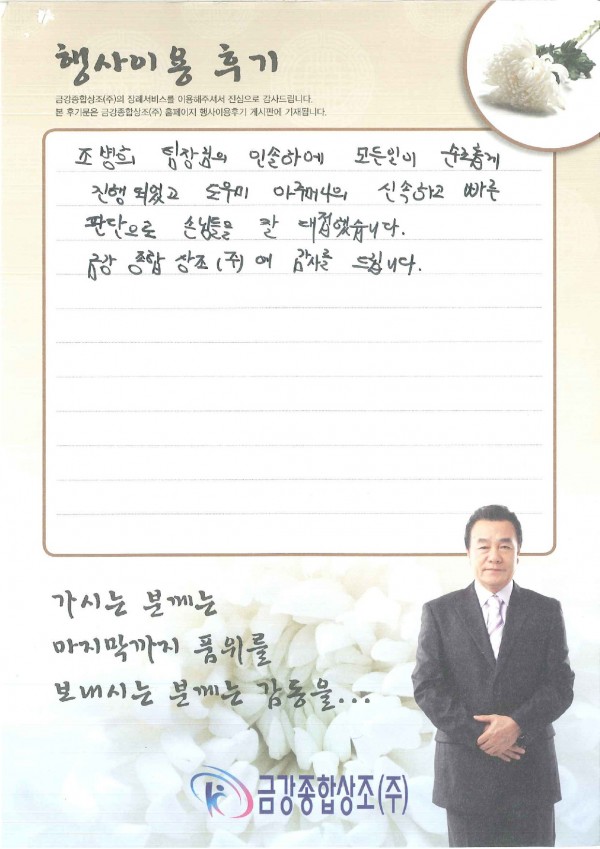 행사이용 후기
금강종합상조(주)의 장례서비스를 이용해주셔서 진심으로 감사드립니다.
본 후기문은 금강종합상조(주) 홈페이지 행사이용후기 게시판에 기재됩니다.
조병희 팀장님의 인솔하에 모든일이 순조롭게
진행되었고 도우미 아주머니의 신속하고 빠른
판단으로 손님들을 잘 대접했습니다.
금강 종합 상조 (주)에 감사를 드립니다.
가시는 분께는
마지막까지 품위를
보내시는 분께는 감동을...
금강종합상조(주)